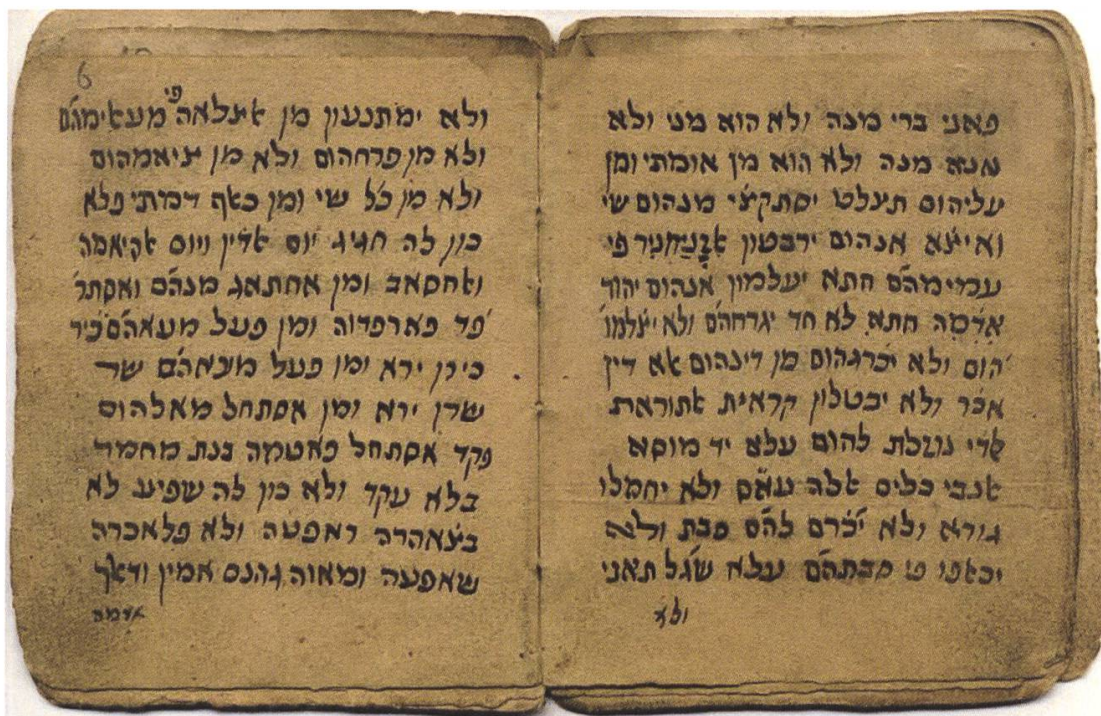 פאני ברי מינה ולא הוא מני ולא
אנא מנה ולא הוא מן אומתי ומן
עליהום תעלט יסתקצי מנהום שי
ואיצא אנהום ירבטון פי
עמימהם חתא יעלמון אנהום יהוד
אדמה חתא לא חד יגרחהם ולא יצלמו
הום ולא יכרגהום מן דינהום אא דין
אכר ולא יבטלון קראית אתוראת
נוזלת להום עלא יד מוסא
אנבי כלים אלה עאם ולא יחמלו
גורא ולא יכרם להם סבת ולא
יכאפו סבתהם עלא שגל תאני
ולא
6
ולא ימתנעון מן אצלאה פי מעאימהם
ולא מן פרחהום ולא מן ציאמהום
ולא מן כל שי ומן כאף דמתי פלא
כון לה חגיג יום אדין ויום אקיאמה
ואחסאב ומן אחתאג מנהם ואסתר
פד פארפדוה ומן פעל מעאהם כיר
כירן ירא ומן פעל מעאהם שר
שרן ירא ומן אסתחל מאלהום
פקד אסתחל פאטמה בנת מחמד
בלא עקד ולא כון לה שפיע לא
בצאהרה ראפטה ולא פלאכרה
שאפעה ומאוה גהנם אמין ודאך
אדמה